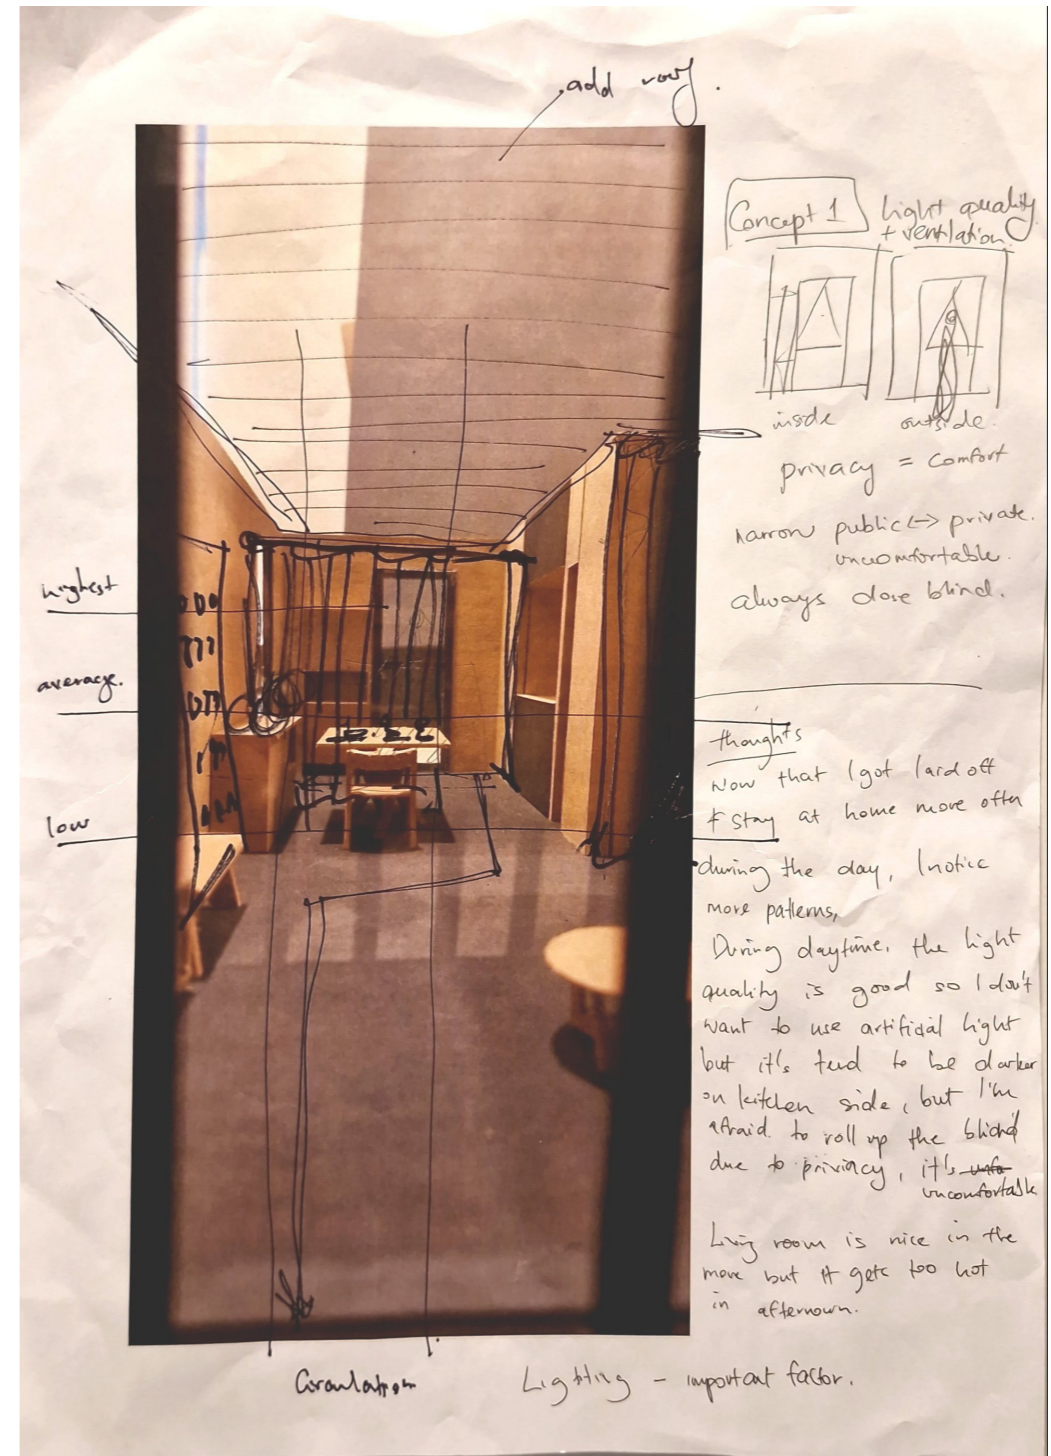 add roof.
Concept 1
Light quality
+ ventilation.
inside
outside.
privacy = comfort
narrow public <-> private.
uncomfortable.
always close blind.
highest
average.
low
thoughts
Now that I got laid off
& stay at home more often
during the day, I notice
more patterns,
During daytime, the light
quality is good so I don't
want to use artificial light
but it's tend to be darker
on kitchen side, but I'm
afraid to roll up the blind
due to privacy, it's
uncomfortable
Living room is nice in the
more but it gets too hot
in afternown.
Circulation
Lighting - important factor.